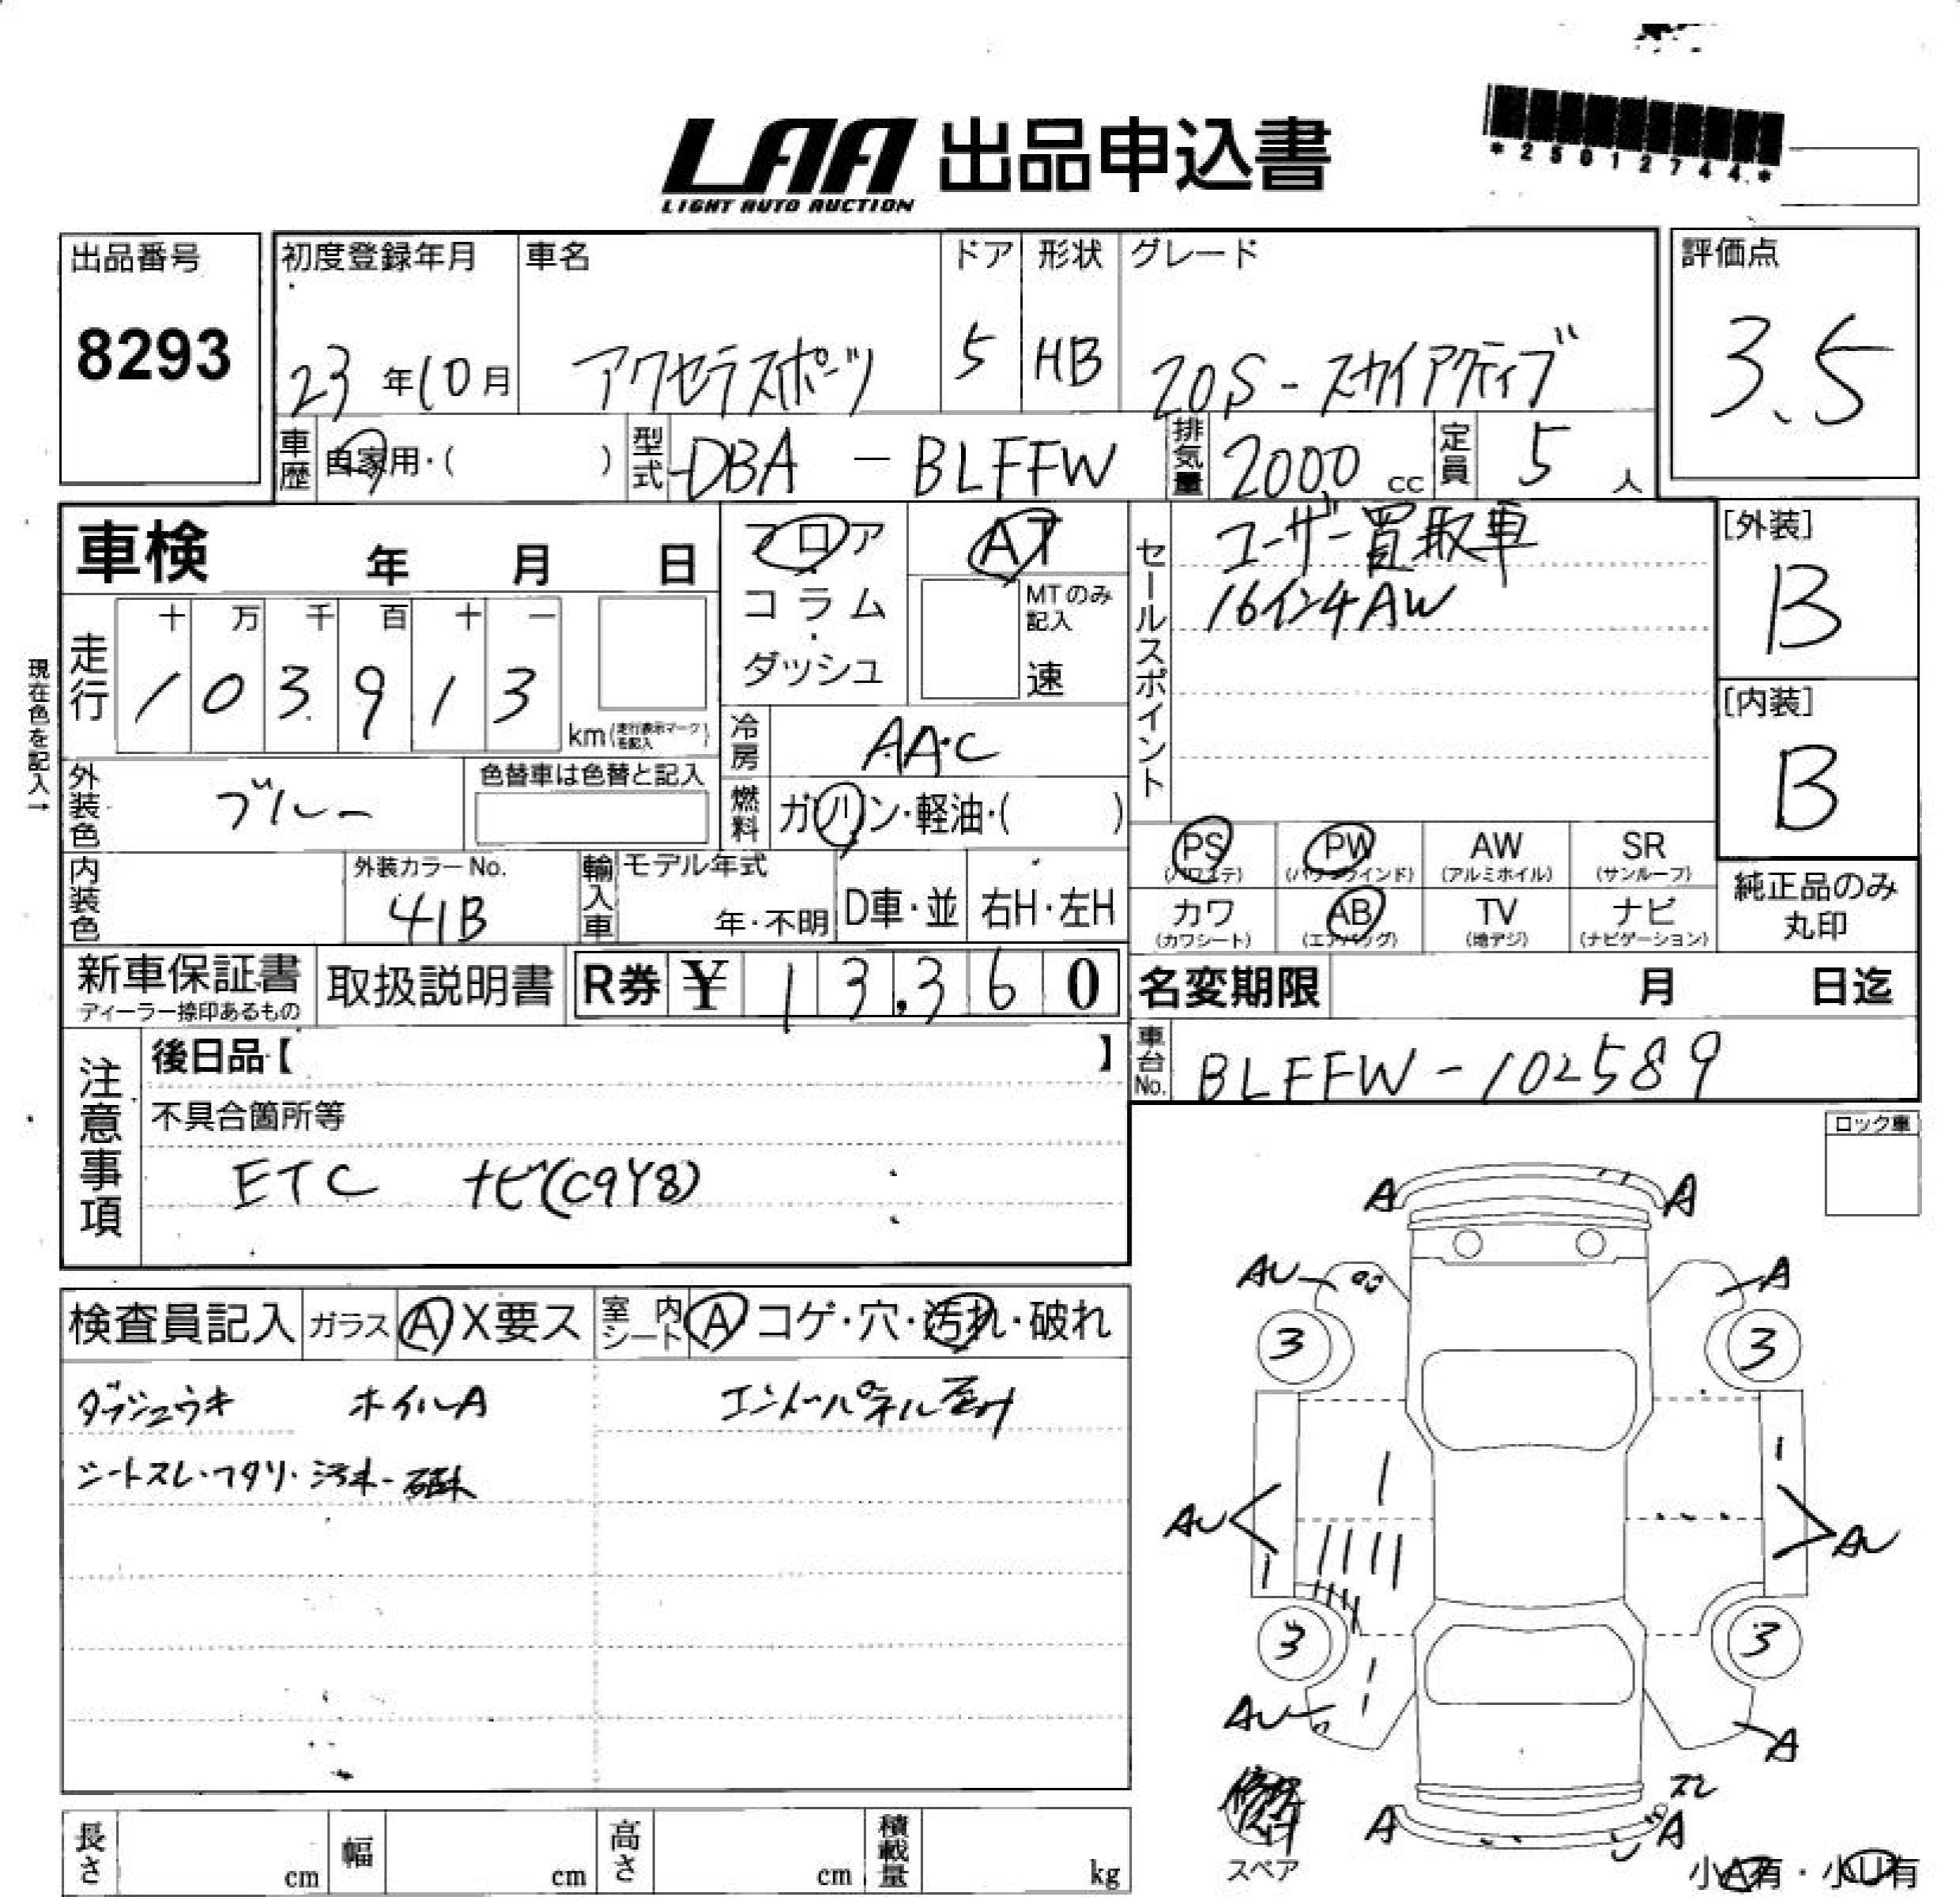 LAA 出品申込書
LIGHT AUTO AUCTION
*25012744*
出品番号
8293
初度登録年月
23年10月
車名
アクセラスポーツ
ドア
5
形状
HB
グレード
20S-スカイアクティブ
評価点
3.5
車歴 自家用・( )
型式 DBA - BLFFW
排気量 2000 cc
定員 5 人
車検 年 月 日
フロア
コラム
・
ダッシュ
AT
MTのみ記入
速
セールスポイント
ユーザー買取車
16インチAW
[外装]
B
[内装]
B
現在色を記入→
走行
十 万 千 百 十 一
1 0 3 9 1 3
km(走行表示マークを記入)
冷房 AAC
燃料 ガソリン・軽油・( )
外装色 ブルー
色替車は色替と記入
内装色
外装カラーNo.
41B
輸入車
モデル年式
年・不明
D車・並
右H・左H
PS (パワステ)
PW (パワーウインド)
AW (アルミホイル)
SR (サンルーフ)
カワ (カワシート)
AB (エアバッグ)
TV (地デジ)
ナビ (ナビゲーション)
純正品のみ
丸印
新車保証書
ディーラー捺印あるもの
取扱説明書
R券 ¥ 13,360
名変期限 月 日迄
車台No. BLFFW-102589
注意事項
後日品【 】
不具合箇所等
ETC ナビ(C9Y8)
ロック車
検査員記入
ガラス A X要ス
室内シート A コゲ・穴・汚れ・破れ
ダッシュウキ ホイルA
エンドパネル
シートスレ・ヘタリ・汚れ・破れ
A A
AU A
3 3
AU AU
3 3
AU A
スレ
A A
スペア
小A有・小U有
長さ cm
幅 cm
高さ cm
積載量 kg